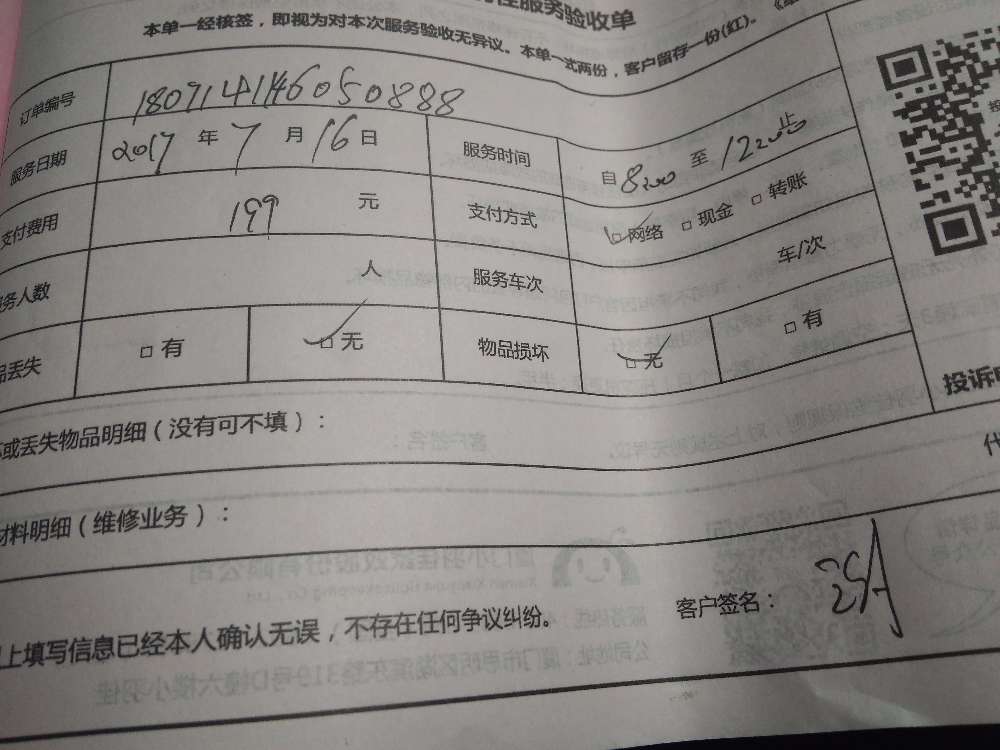 性服务验收单
本单一经核签，即视为对本次服务验收无异议。本单一式两份，客户留存一份(红)。
订单编号 1809141146050888
服务日期 2017 年 7 月 16 日 服务时间 自 8:00 至 12:00 止
支付费用 199 元 支付方式 □网络 □现金 □转账
务人数 人 服务车次 车/次
品丢失 □有 □无 物品损坏 □无 □有
或丢失物品明细（没有可不填）：
投诉
材料明细（维修业务）：
上填写信息已经本人确认无误，不存在任何争议纠纷。 客户签名：